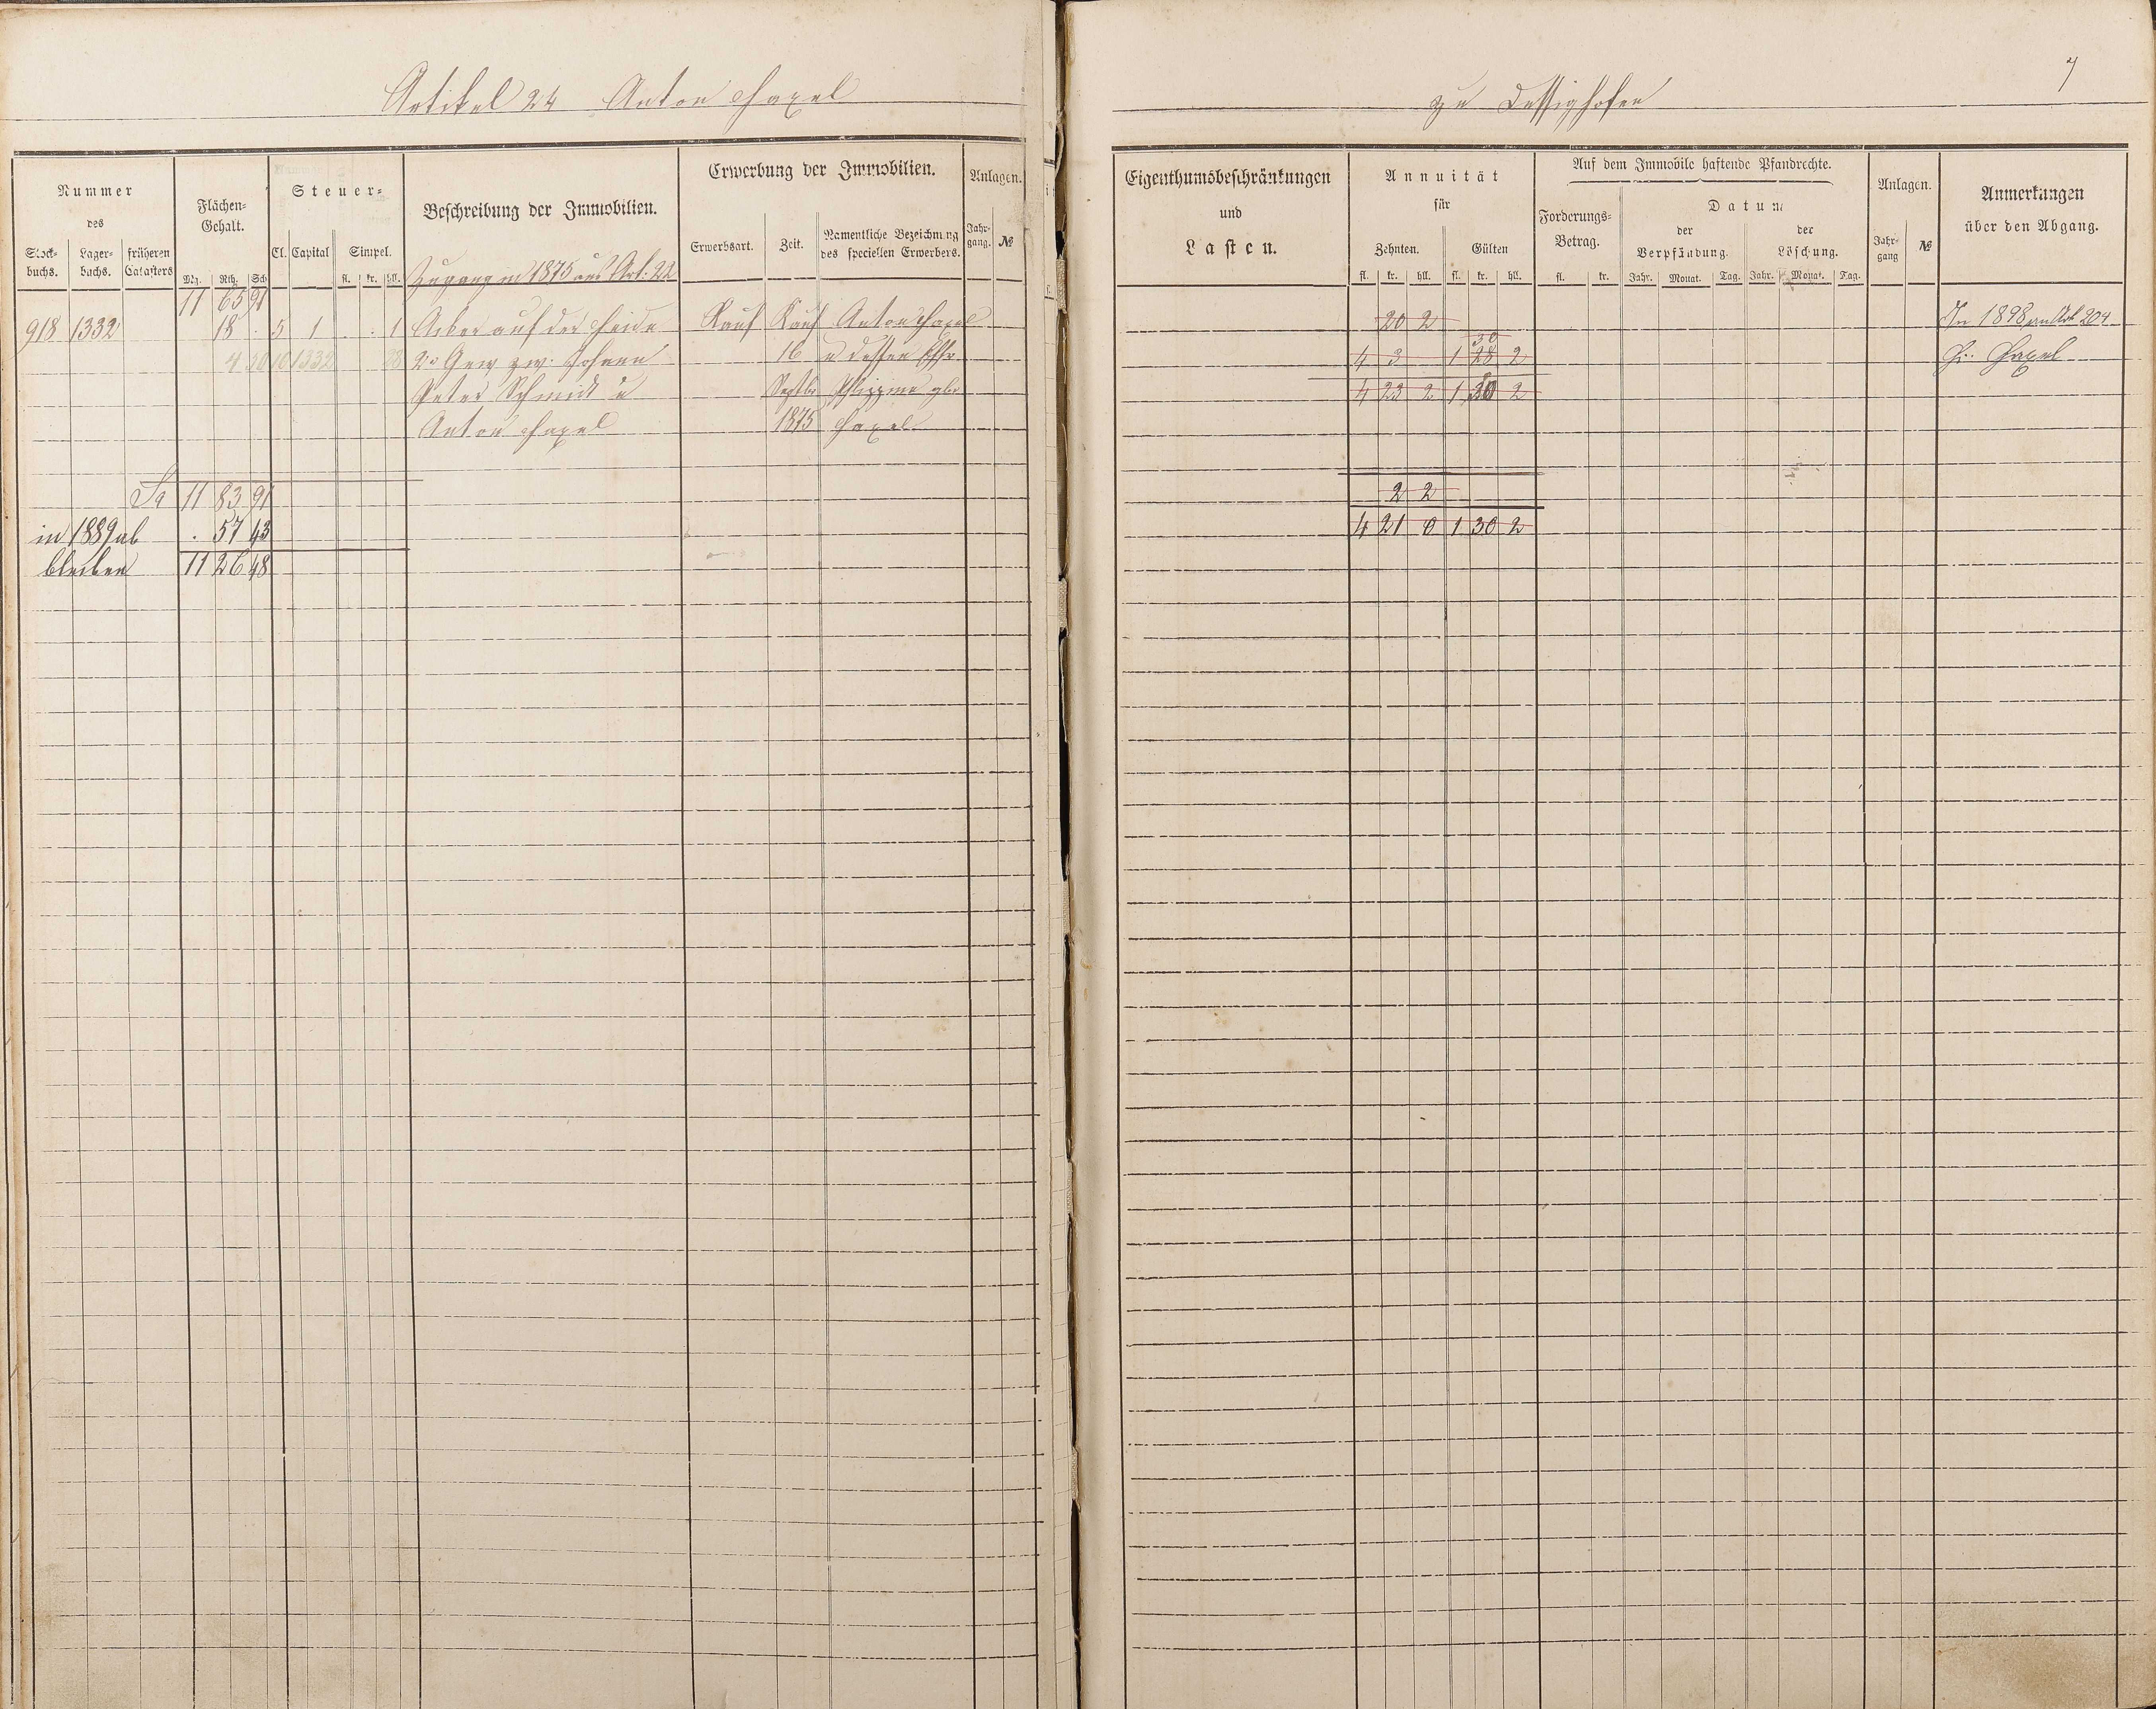 Artikel 24 Anton Hazel
zu Dessighofen
7
Nummer
des
Stock-
buchs.
Lager-
buchs.
früheren
Catasters
Flächen-
Gehalt.
Mg. Rth. Sch
Steuer-
Cl. Capital Simpel.
fl. kr. hll.
Beschreibung der Immobilien.
Erwerbung der Immobilien.
Erwerbsart. Zeit.
Namentliche Bezeichnung
des speciellen Erwerbers.
Anlagen.
Jahr-
gang. №
Zugang in 1875 aus Art: 22
11 65 91
918 1332 18 . 5 1 . . 1 Acker auf der Heide Kauf Kauf Anton Hazel
4 50 10 1332 28 2r Gew zw. Johann 16 u dessen Ehfr
Peter Schmidt u Septbr Philippine gbr
Anton Hazel 1875 Hazel
Sa 11 83 91
in 1889 ab . 57 43
bleiben 11 26 48
Eigenthumsbeschränkungen
und
Lasten.
Annuität
für
Zehnten. Gülten
fl. kr. hll. fl. kr. hll.
Auf dem Immobile haftende Pfandrechte.
Forderungs-
Betrag.
fl. kr.
Datum
der
Verpfändung.
Jahr. Monat. Tag.
der
Löschung.
Jahr. Monat. Tag.
Anlagen.
Jahr-
gang №
Anmerkungen
über den Abgang.
20 2 In 1898 an Art 204
30
4 3 1 28 2 Hazel
4 23 2 1 30 2
2 2
4 21 0 1 30 2